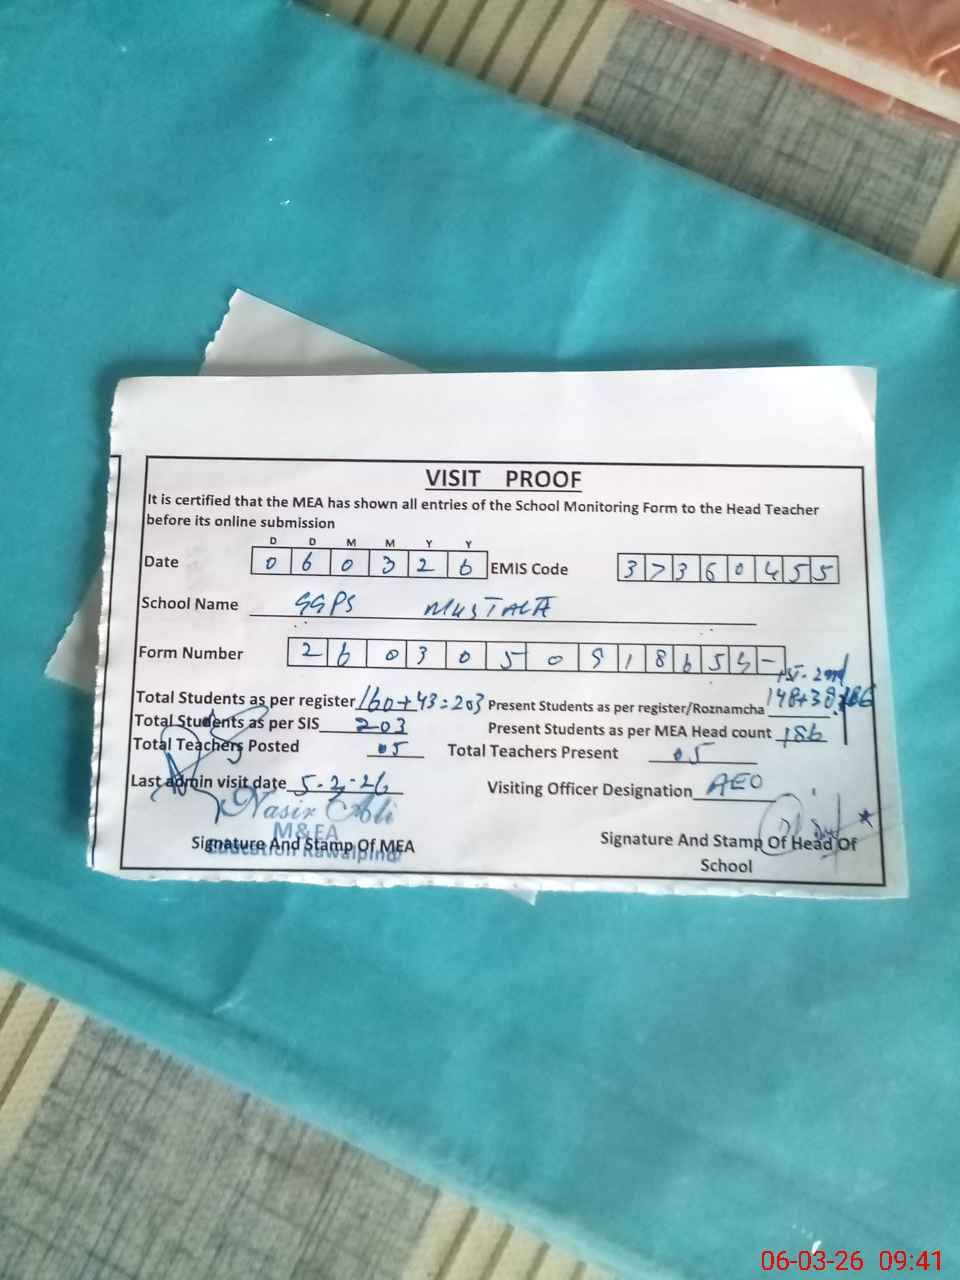 VISIT PROOF
It is certified that the MEA has shown all entries of the School Monitoring Form to the Head Teacher
before its online submission
D D M M Y Y
Date 0 6 0 3 2 6 EMIS Code 3 7 3 6 0 4 5 5
School Name GGPS
Form Number 2 6 0 3 0 5 0 9 1 8 6 5 5 -
1st - 2nd
Total Students as per register 160+43=203 Present Students as per register/Roznamcha 148+38=186
Total Students as per SIS 203 Present Students as per MEA Head count 186
Total Teachers Posted 05 Total Teachers Present 05
Last admin visit date 5-2-26 Visiting Officer Designation AEO
Nasir Ali
M&EA
Education Rawalpindi
Signature And Stamp Of MEA
Signature And Stamp Of Head Of
School
06-03-26 09:41